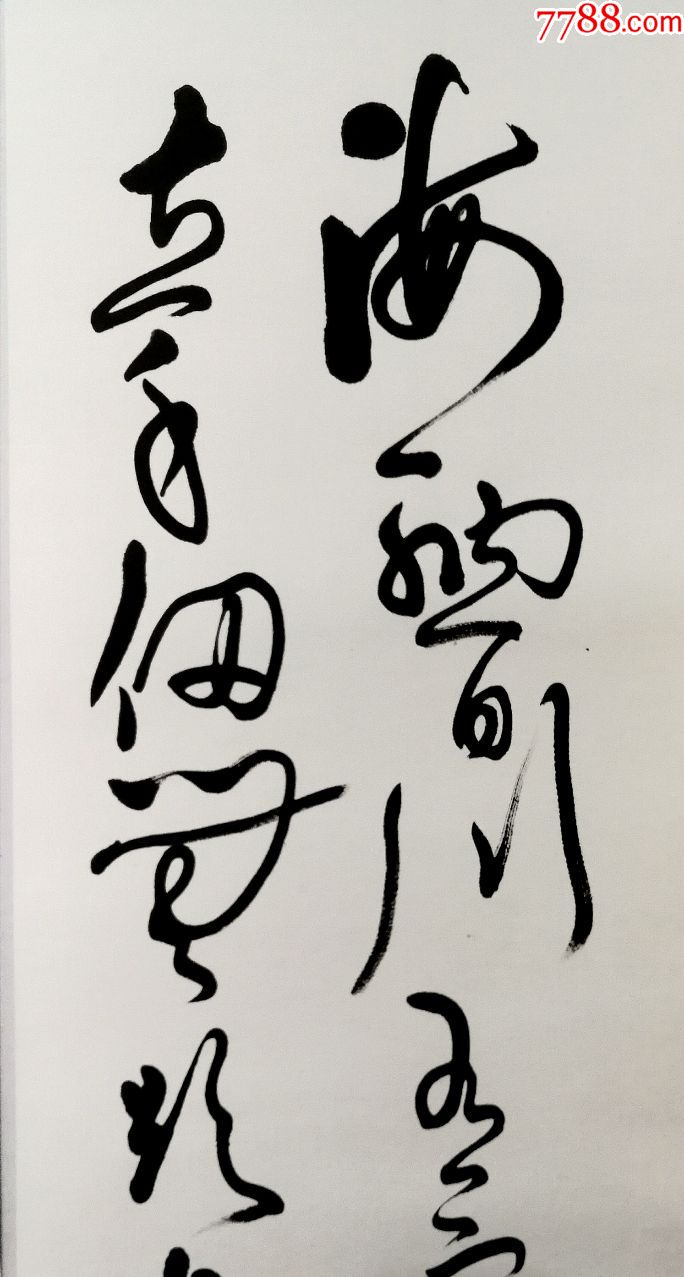 7788.com
海纳百川有容
壁立千仞無欲